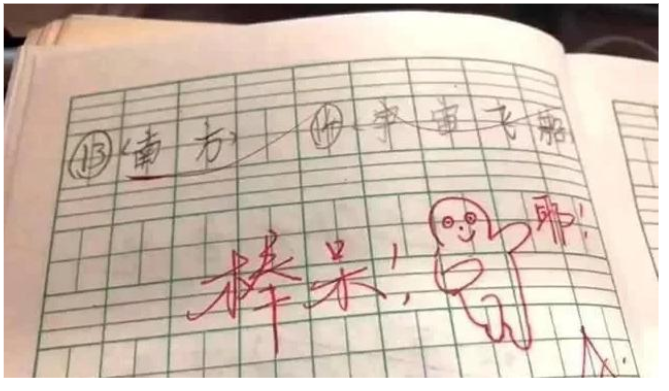 ⑬(南方) ⑭宇宙飞船
棒呆! 耶!
A.